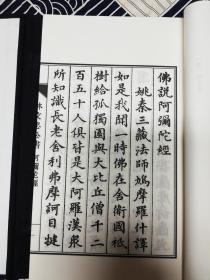 佛說阿彌陀經
姚秦三藏法師鳩摩羅什譯
如是我聞一時佛在舍衛國祇
樹給孤獨園與大比丘僧千二
百五十人俱皆是大阿羅漢衆
所知識長老舍利弗摩訶目揵